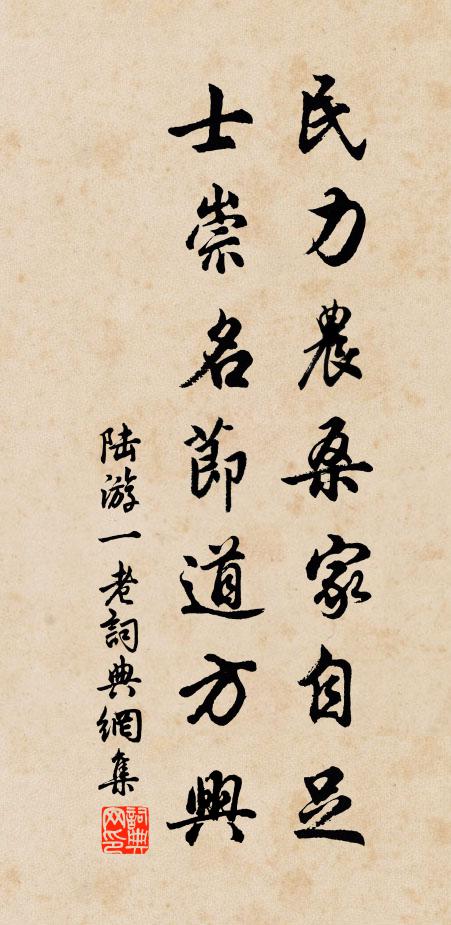 民力農桑家自足
士崇名節道方興
陸游一老詞典網集
詞典網印